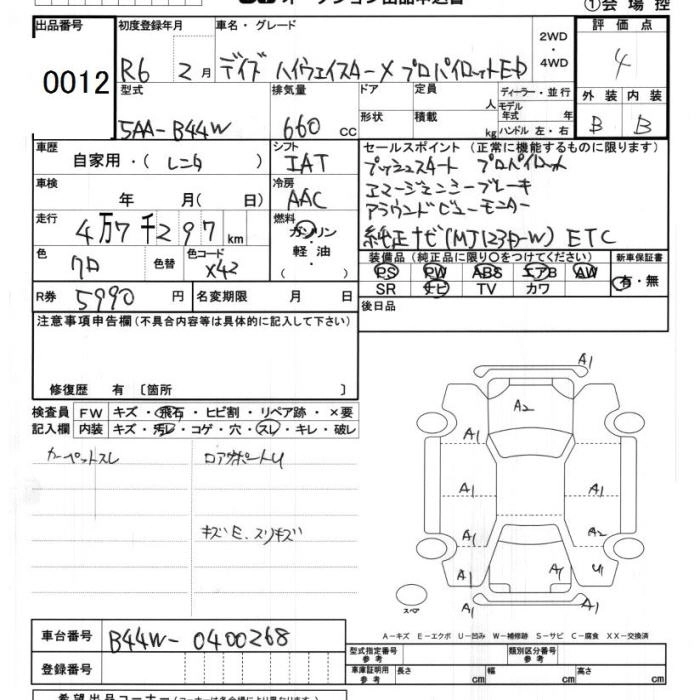 オークション出品申込書
①会場控
出品番号 初度登録年月 車名・グレード 2WD・4WD 評価点
0012 R6 2月 デイズ ハイウェイスターX プロパイロットED 4
型式 排気量 ドア 定員 人 ディーラー・並行 外装 内装
5AA-B44W 660 cc 形状 積載 kg モデル年式 年 ハンドル 左・右 B B
車歴 シフト セールスポイント (正常に機能するものに限ります)
自家用・(レンタ) IAT プッシュスタート プロパイロット
車検 冷房 エマージェンシーブレーキ
年 月(日) AAC アラウンドビューモニター
走行 燃料
4万7千297km ガソリン・軽油・ 純正ナビ(MJ123D-W) ETC
色 色替 色コード 装備品(純正品に限り○をつけてください) 新車保証書
クロ X42 PS PW ABS エアB AW 有・無
SR ナビ TV カワ
R券 5990円 名変期限 月 日 後日品
注意事項申告欄(不具合内容等は具体的に記入して下さい)
修復歴 有〔箇所 〕
検査員 FW キズ・飛石・ヒビ割・リペア跡・×要
記入欄 内装 キズ・汚レ・コゲ・穴・スレ・キレ・破レ
カーペットスレ ロアサポートU
キズE、スリキズ
A1
A2
A1 A1
A1 A1
A1 A2
A1 A1 U1
A1
スペア
A-キズ E-エクボ U-凹み W-補修跡 S-サビ C-腐食 XX-交換済
車台番号 B44W-0400268
型式指定番号 参考 類別区分番号 参考
登録番号 車庫証明用 参考 長さ cm 幅 cm 高さ cm
希望出品コーナー